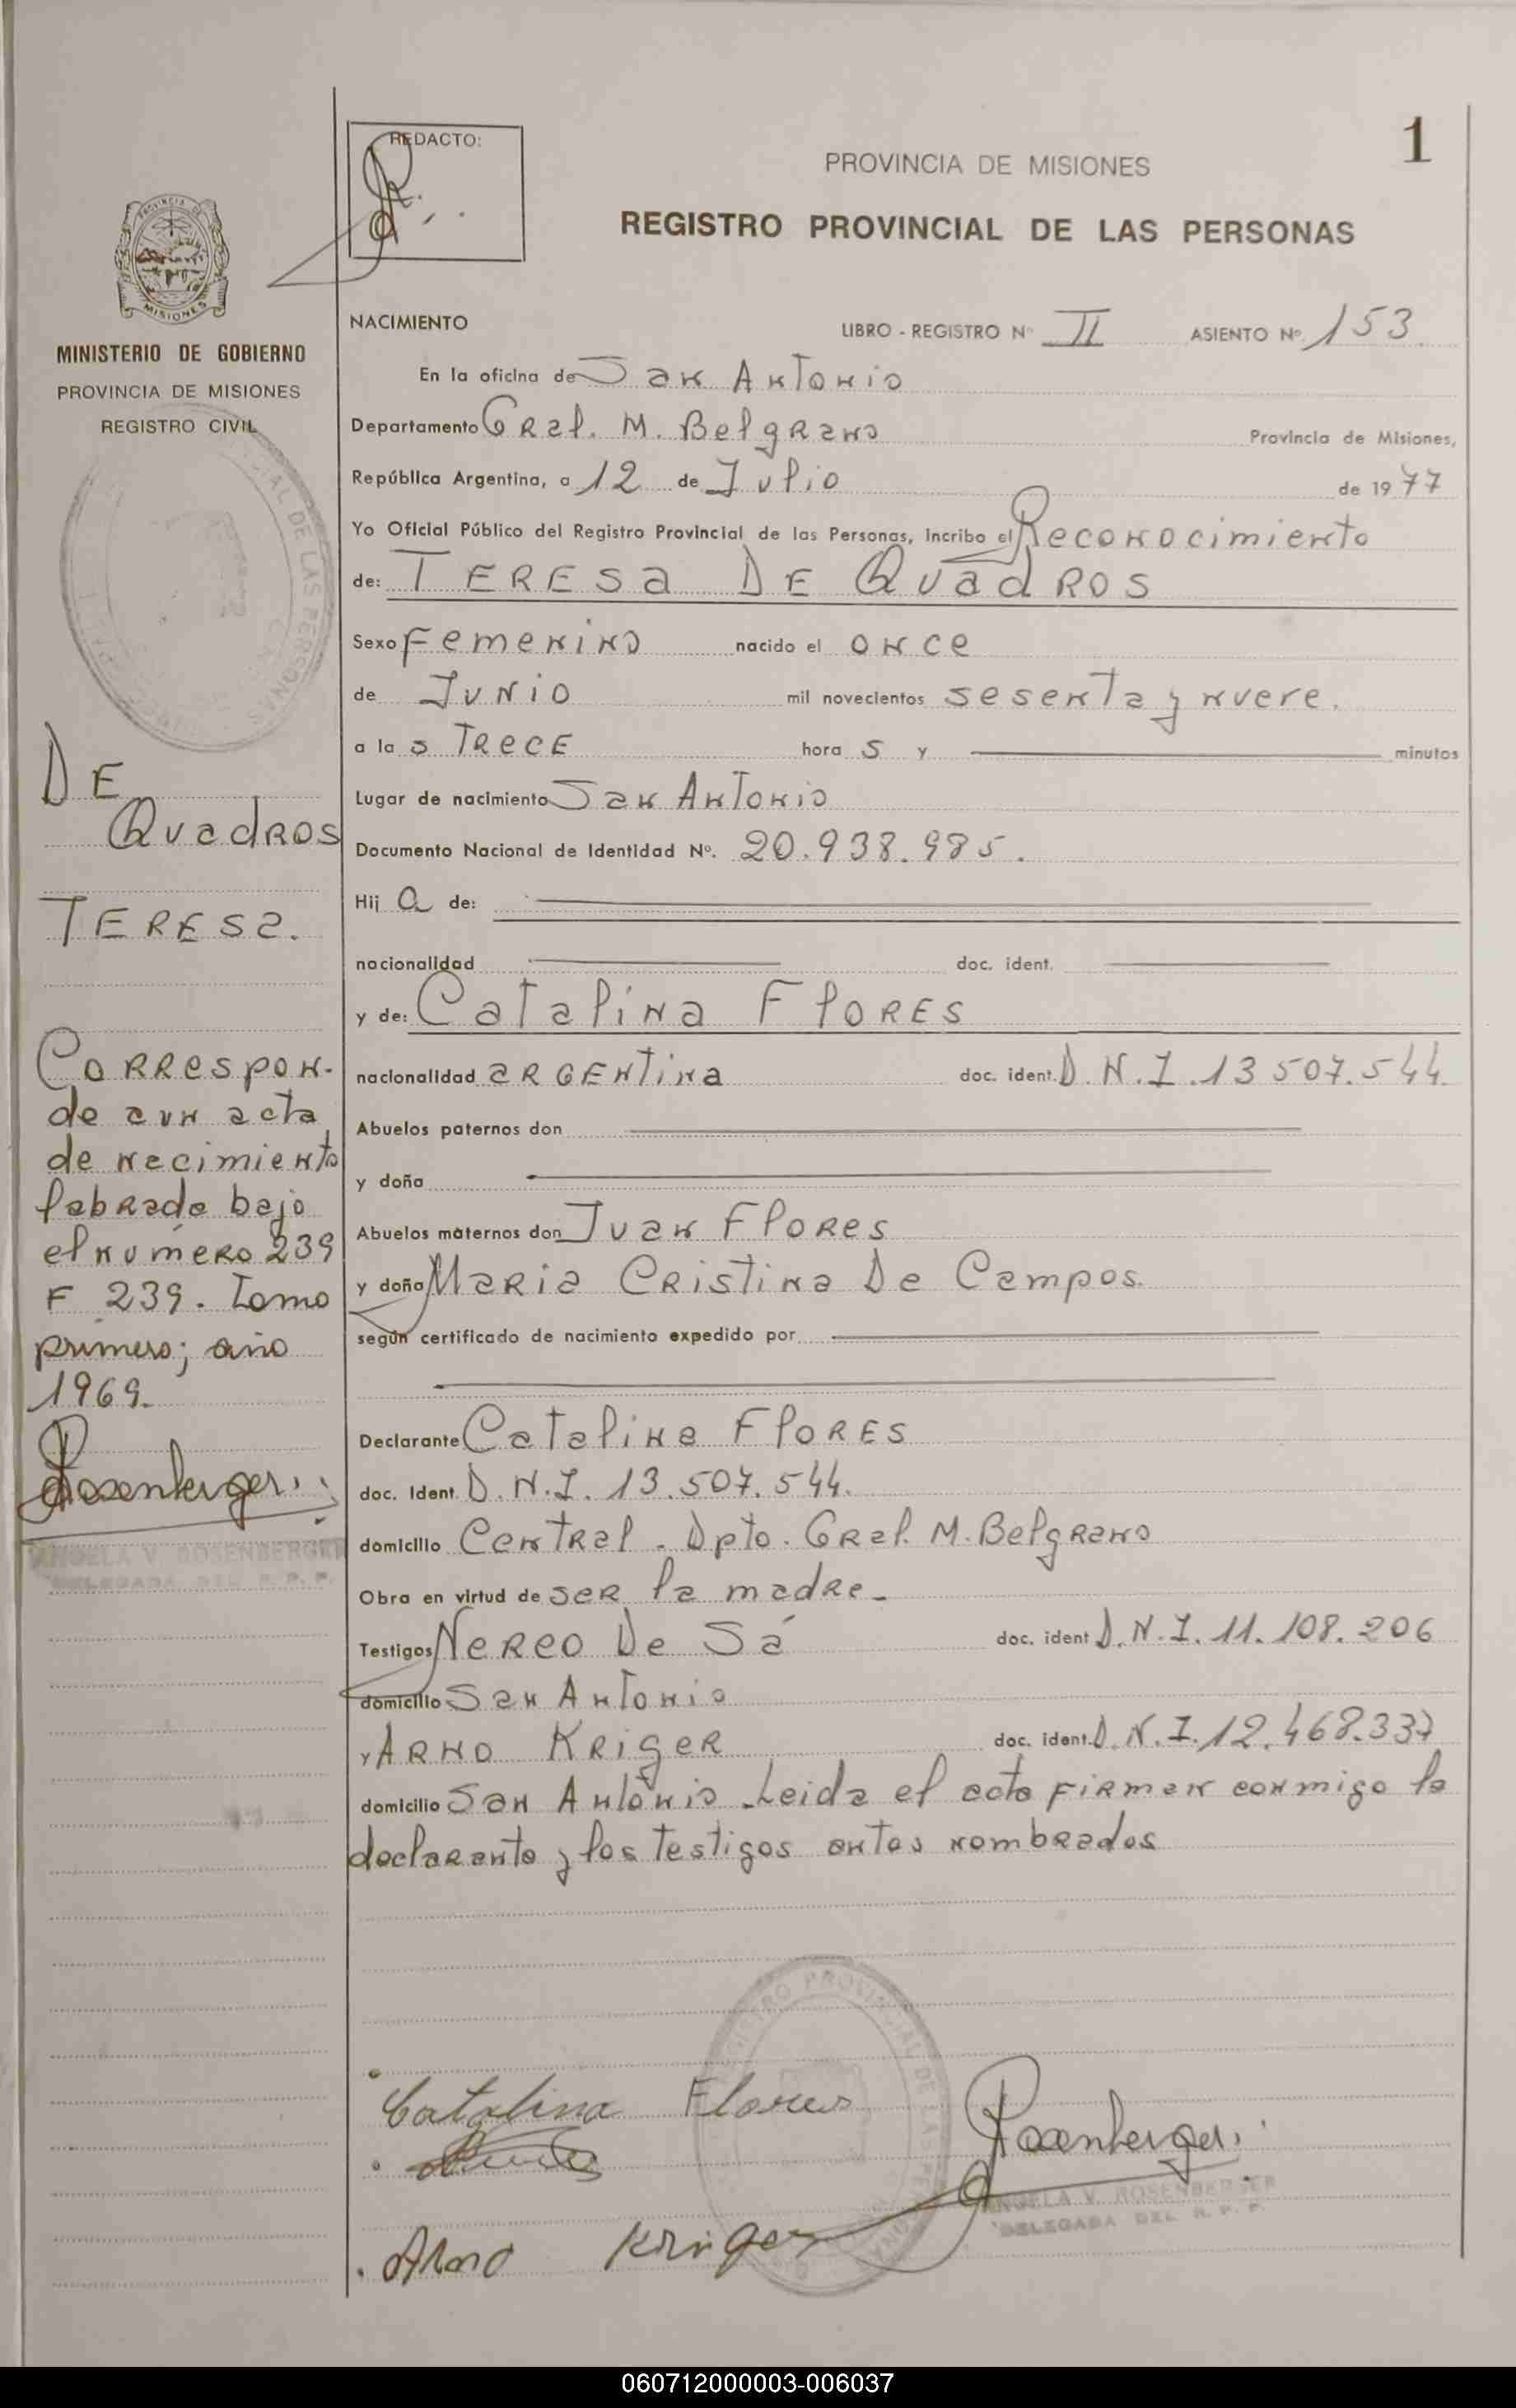 REDACTO:
1
PROVINCIA DE MISIONES
REGISTRO PROVINCIAL DE LAS PERSONAS
MISIONES
MINISTERIO DE GOBIERNO
PROVINCIA DE MISIONES
REGISTRO CIVIL
NACIMIENTO
LIBRO - REGISTRO Nº II ASIENTO Nº 153
En la oficina de San Antonio
Departamento Gral. M. Belgrano Provincia de Misiones,
República Argentina, a 12 de Julio de 1977
Yo Oficial Público del Registro Provincial de las Personas, incribo el Reconocimiento
de: TERESa DE QUadROS
Sexo Femenino nacido el once
de Junio mil novecientos sesenta y nueve.
a la s TRECE hora s y minutos
Lugar de nacimiento San Antonio
Documento Nacional de Identidad Nº. 20.938.985.
Hij a de:
nacionalidad doc. ident.
y de: Catalina FlORES
nacionalidad aRGENtina doc. ident. D.N.I. 13 507.544.
Abuelos paternos don
y doña
Abuelos maternos don Juan Flores
y doña Maria Cristina De Campos.
según certificado de nacimiento expedido por
Declarante Catalina FlORES
doc. Ident. D.N.I. 13.507.544.
domicilio Central. Dpto. Gral. M. Belgrano
Obra en virtud de ser la madre.
Testigos Nereo De Sá doc. ident D.N.I. 11.108.206
domicilio San Antonio
y ARNO KRigeR doc. ident. D.N.I. 12.468.337
domicilio San Antonio. Leida el acta firman conmigo la
declarante y los testigos antes nombrados
DE
Quadros
TERESa.
Correspon-
de a un acta
de nacimiento
labrada bajo
el número 239
F 239. Tomo
primero; año
1969.
Rosenberger
ANGELA V. ROSENBERGER
DELEGADA DEL R. P. P.
Catalina Flores
Rosenberger
ANGELA V. ROSENBERGER
DELEGADA DEL R. P. P.
Arno Kriger
060712000003-006037